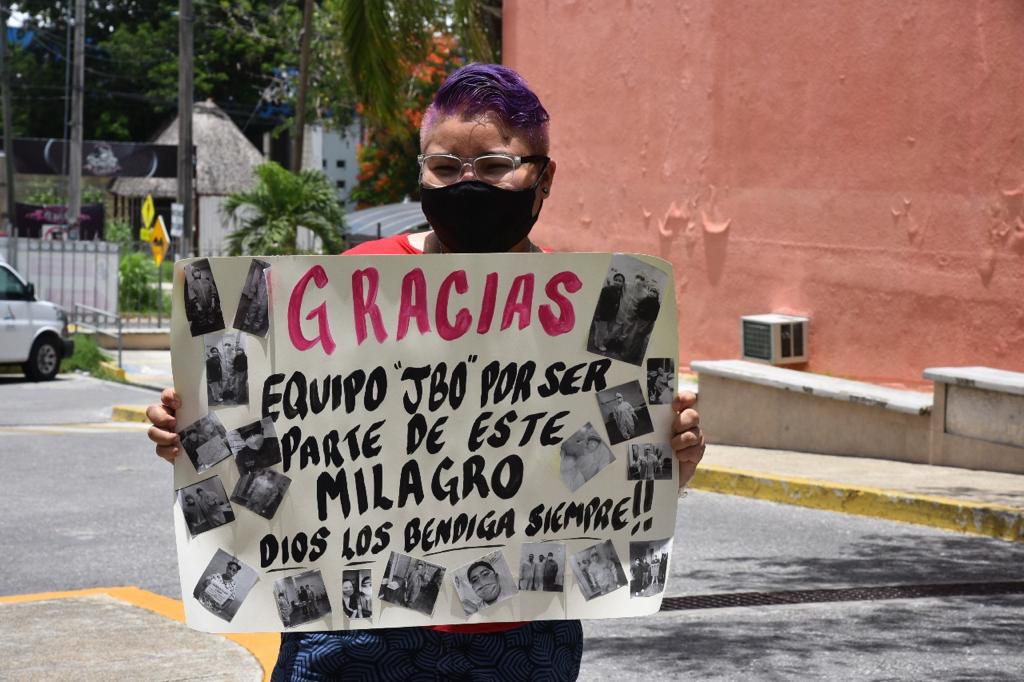 GRACIAS
EQUIPO "JBO" POR SER
PARTE DE ESTE
MILAGRO
DIOS LOS BENDIGA SIEMPRE!!